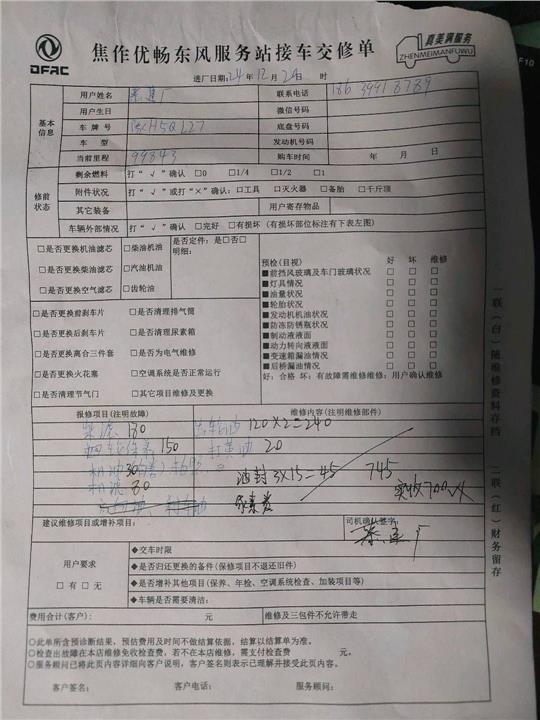 DFAC
焦作优畅东风服务站接车交修单
真美满服务
ZHENMEIMANFUWU
F10
进厂日期:24年12月20日 时
基本信息
用户姓名
联系电话 18639918789
用户生日
微信号码
车牌号 H5Q127
底盘号码
车型
发动机号码
当前里程 99843
购车时间 年 月 日
修前状态
剩余燃料 打“√”确认 □0 □1/4 □1/2 □1
附件状况 打“√”或打“×”确认:□工具 □灭火器 □备胎 □千斤顶
其它装备
用户寄存物品
车辆外部情况 打“√”确认 □完好 □有损坏 (有损坏部位标注有下表左图)
□是否更换机油滤芯 □柴油机油
□是否更换柴油滤芯 □汽油机油
□是否更换空气滤芯 □齿轮油
是否定件:是□否□
明细:
□是否更换前刹车片 □是否清理排气筒
□是否更换后刹车片 □是否清理尿素箱
□是否更换离合三件套 □是否为电气维修
□是否更换火花塞 □空调系统是否正常运行
□是否清理节气门 □其它项目维修及更换
预检(目视) 好 坏 维修
■前挡风玻璃及车门玻璃状况 □ □ □
■灯具情况 □ □ □
■油量状况 □ □ □
■轮胎状况 □ □ □
■发动机机油状况 □ □ □
■防冻防锈瓶状况 □ □ □
■制动液液面 □ □ □
■动力转向液液面 □ □ □
■变速箱漏油情况 □ □ □
■后桥漏油情况 □ □ □
好:合格 坏:有故障需维修维修:用户确认维修
报修项目(注明故障)
维修内容(注明维修部件)
柴滤 180
齿轮油 120×2=240
150
打黄油 20
机油
油封 3×15=45
745
机滤 80
尿素
实收700
建议维修项目或增补项目:
司机确认签字:
用户要求
□有 □无
◆交车时限
◆是否归还更换的备件(保修项目不退还旧件)
◆是否增补其他项目(保养、年检、空调系统检查、加装项目等)
◆车辆是否需要清洁:
费用合计(客户): 元
维修及三包件不允许带走
○此单所含预诊断结果,预估费用及时间不做结算依据,结算以结算单为准。
○检查出故障在本店维修免收检查费,若不在本店维修,需支付检查费 元。
○服务顾问已将此页内容详细向客户说明,客户签名则表示已理解并接受此页内容。
客户签名: 客户电话: 服务顾问:
一联(白)随维修资料存档
二联(红)财务留存